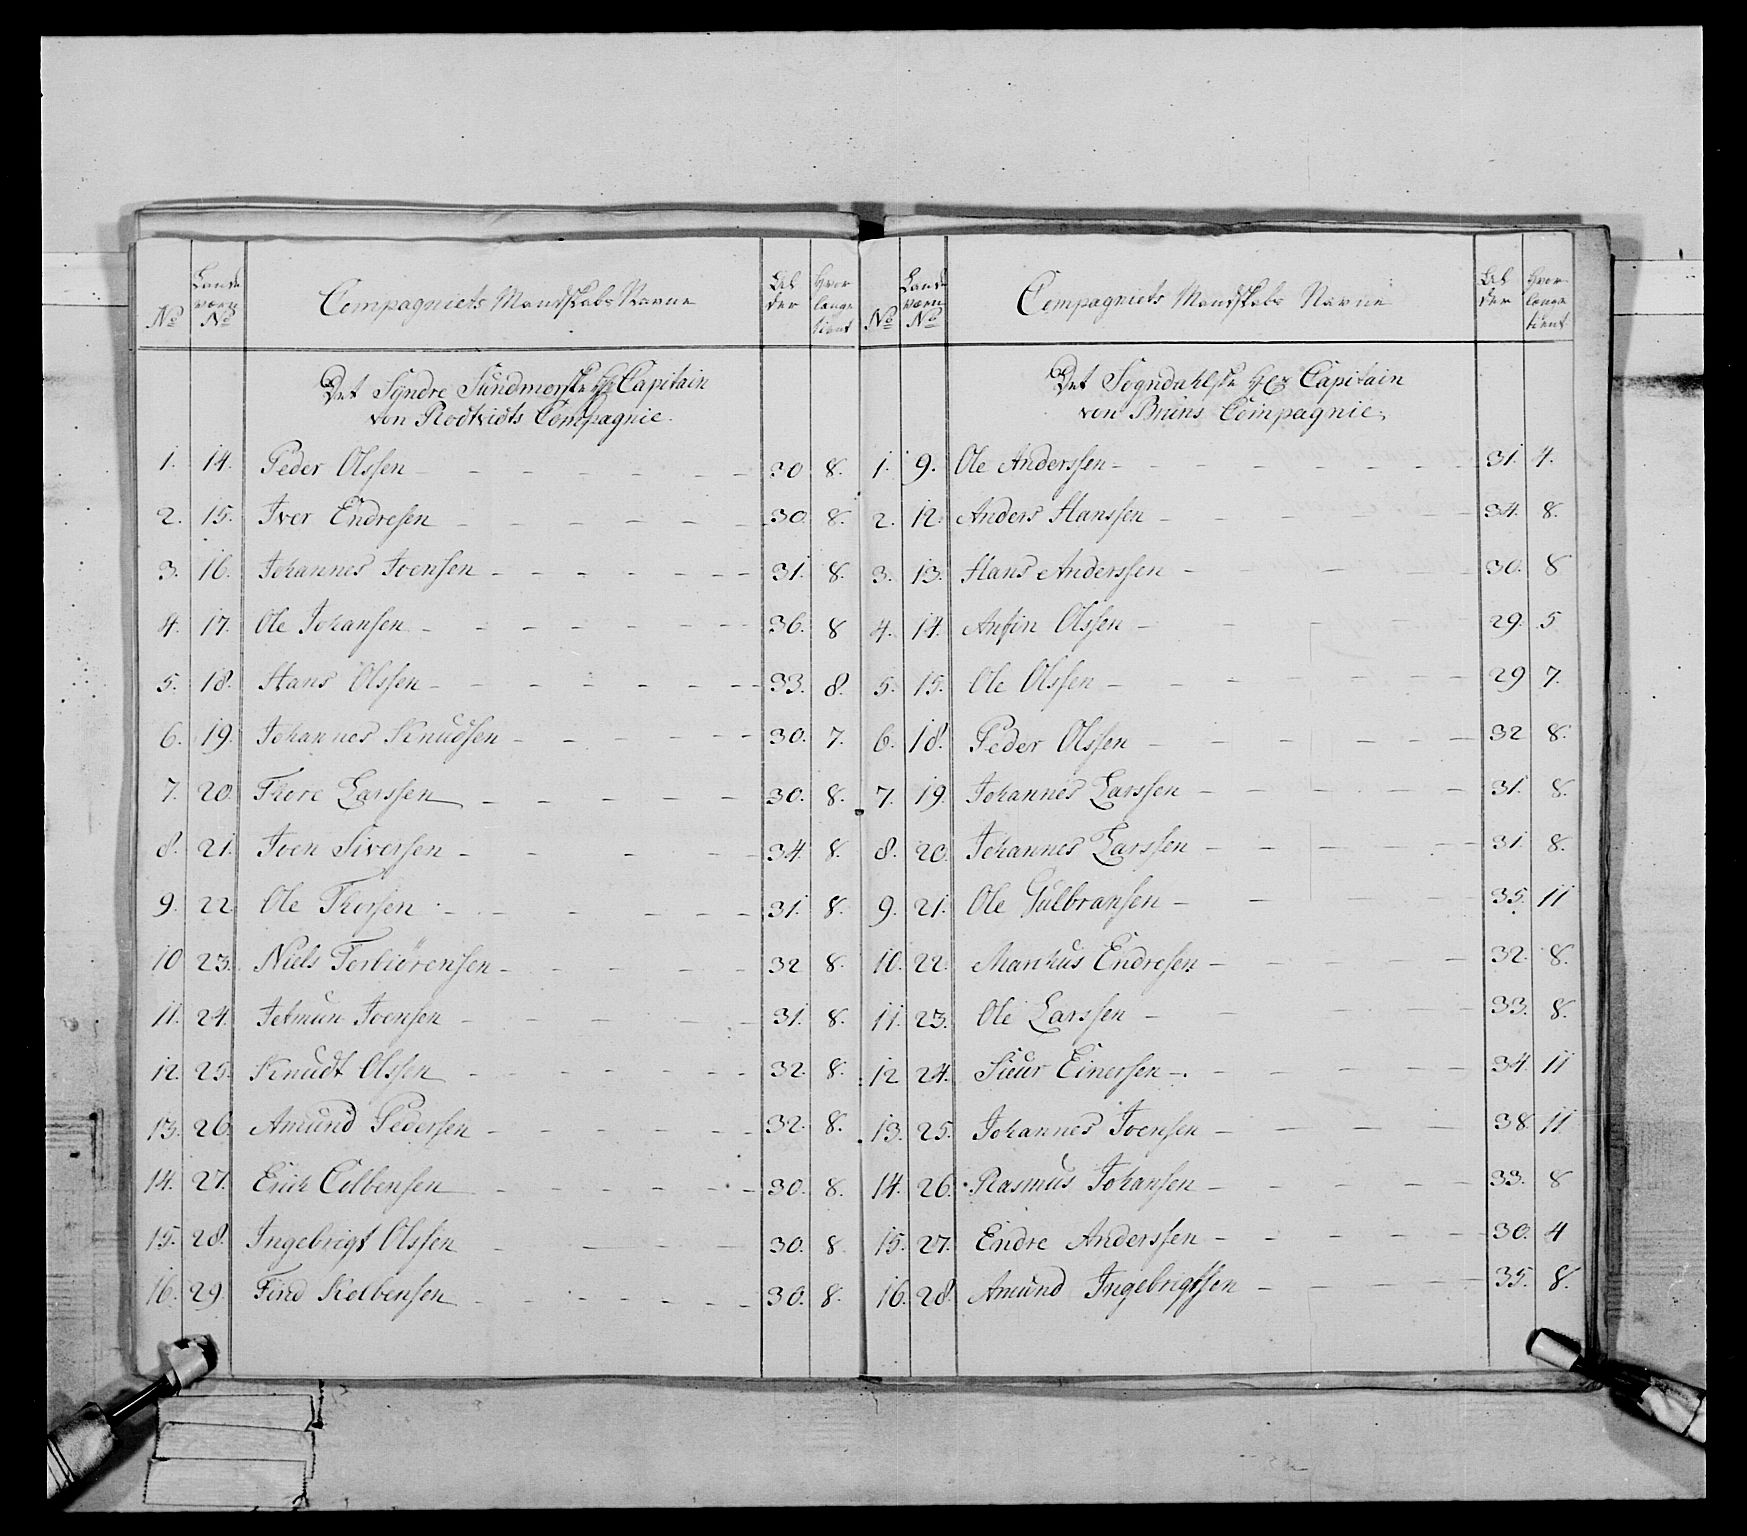 No Land værn No Compagniets Mandskabs Navne Al der Hvor længe tient
Det Syndre Sundmørske Hr Capitain
von Rodtvidts Compagnie.
1. 14. Peder Olssen 30 8.
2. 15. Iver Endresen 30. 8.
3. 16. Johannes Joensen 31. 8.
4. 17. Ole Johansen 36. 8
5. 18. Hans Olssen 33. 8.
6. 19. Johannes Knudsen 30. 7.
7. 20. Thore Larssen 30. 8.
8. 21. Joen Siversen 34. 8.
9. 22 Ole Thorsen 31. 8.
10 23. Niels Torbiörensen 32 8.
11. 24. Jetmun Joensen 31. 8.
12. 25. Knudt Olssen 32. 8.
13. 26. Amund Pedersen 32. 8.
14. 27. Erich Colbensen 30. 8.
15. 28. Ingebrigt Olssen 30. 8
16. 29. Find Kolbensen 30. 8.
No Land værn No Compagniets Mandskabs Navne Al der Hvor længe tient
Det Sogndahlske Hr Capitain
von Bruns Compagnie.
1. 9. Ole Anderssen 31. 4.
2. 12. Anders Hanssen 34. 8.
3. 13. Hans Anderssen 30. 8
4. 14. Anfin Olssen 29. 5
5. 15. Ole Olssen 29 7.
6. 18. Peder Olssen 32 8.
7. 19. Johannes Larssen 31. 8.
8. 20. Johannes Larssen 31. 8.
9. 21. Ole Gulbransen 35. 11
10. 22. Marchus Endresen 32. 8.
11. 23. Ole Larssen 33. 8.
12 24. Siur Einersen 34. 11
13. 25. Johannes Joensen 38 11
14. 26. Rasmus Johansen 33. 8
15. 27. Endre Anderssen 30. 4
16. 28. Amund Ingebrigtsen 35. 8.